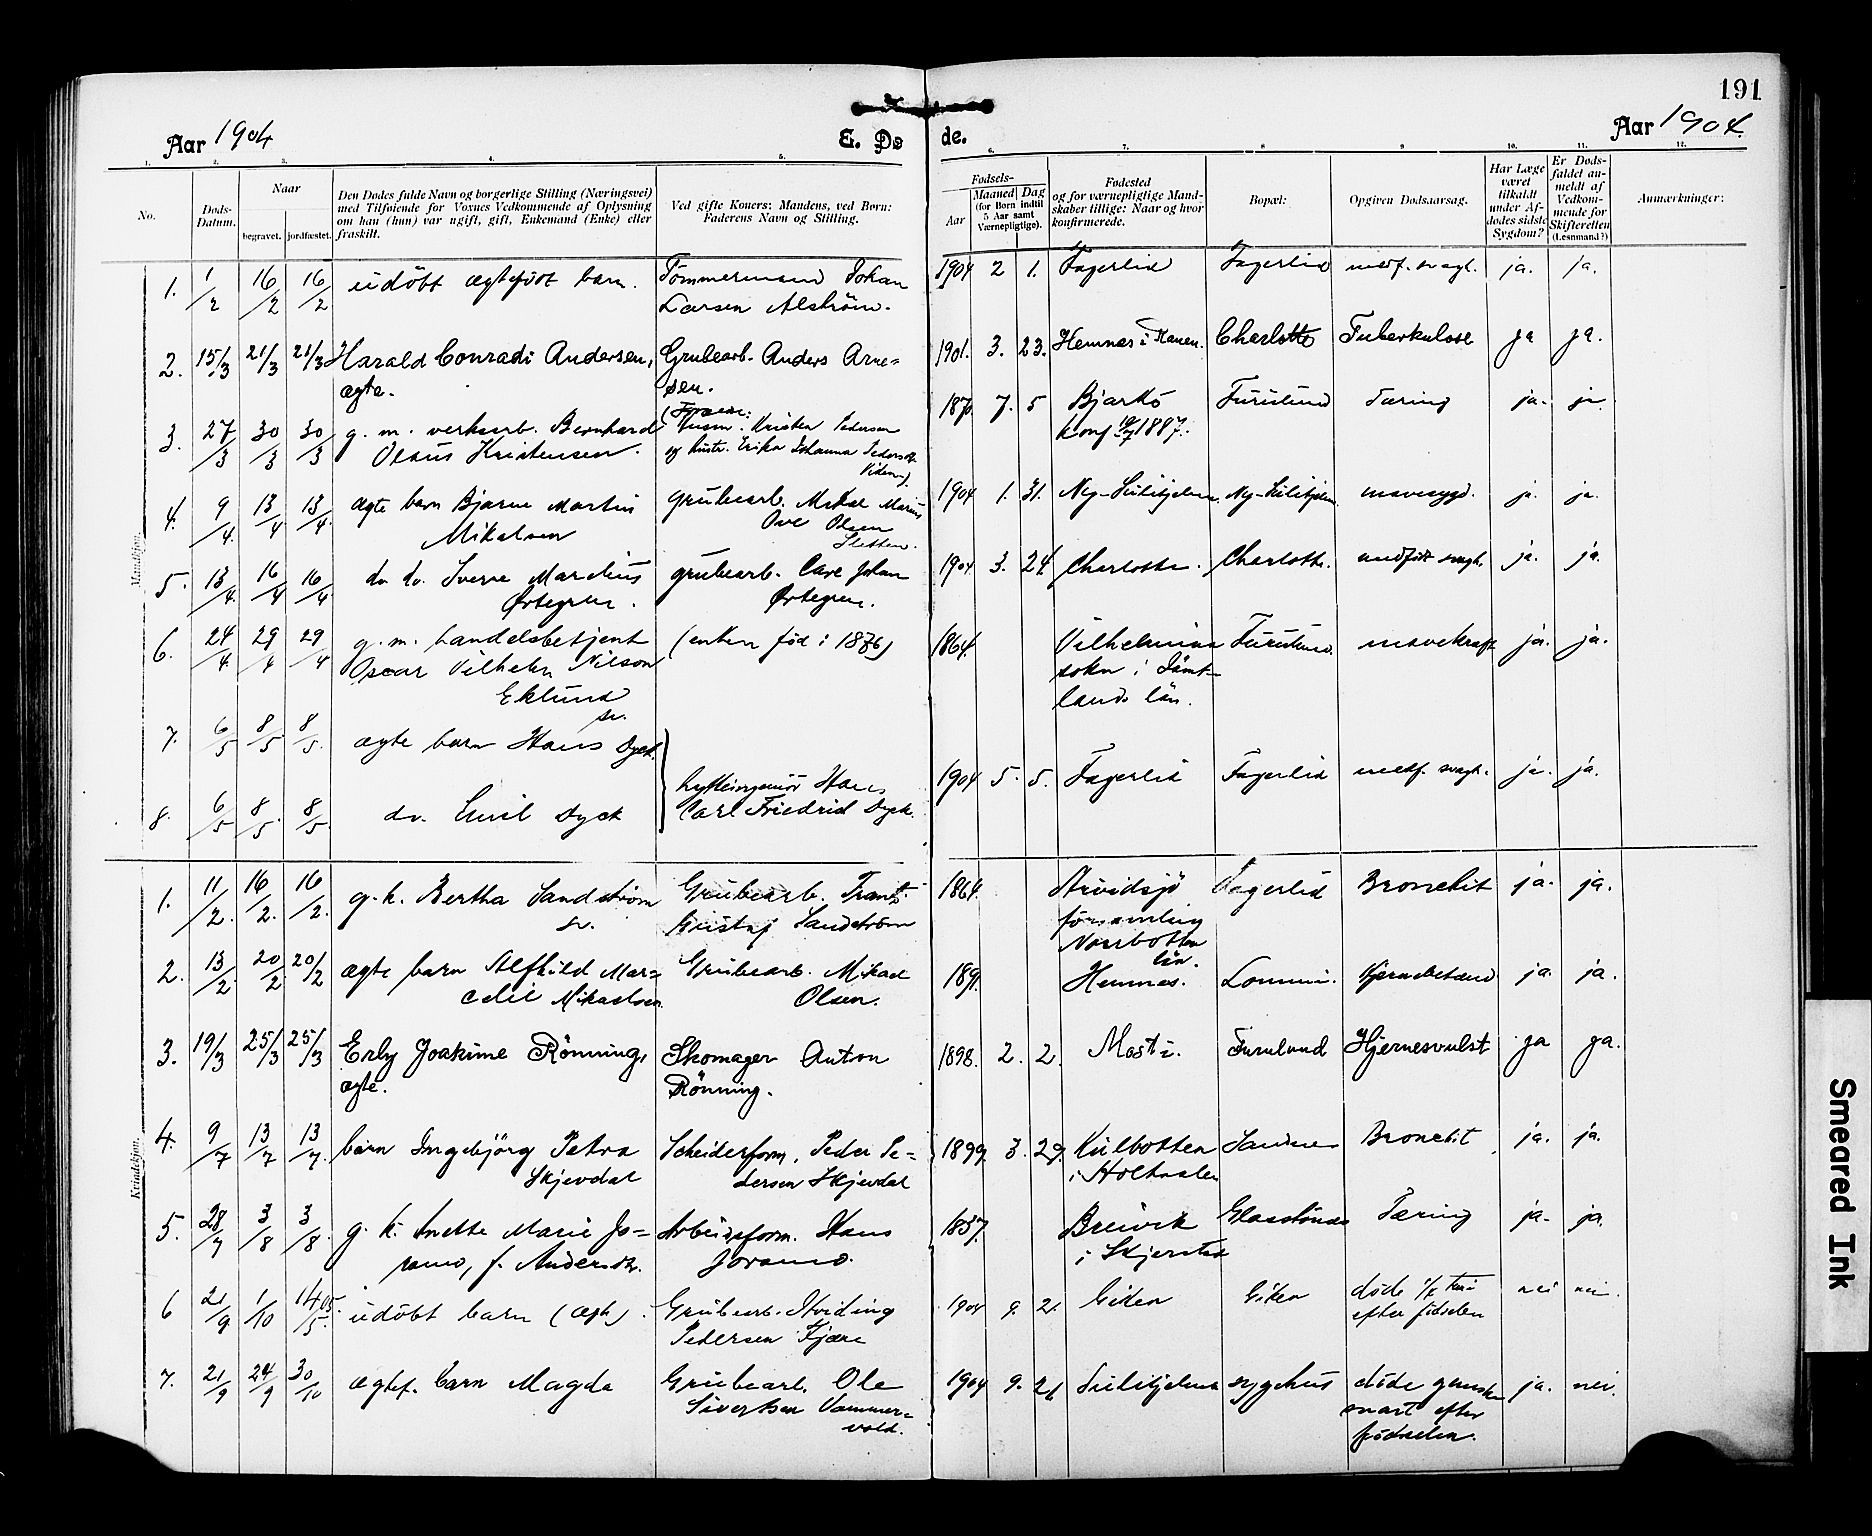 191
Aar 1904
E. Døde.
Aar 1904.
1. 2. 3. 4. 5. 6. 7. 8 9 10. 11. 12.
No.
Døds-Datum.
Naar
begravet. jordfæstet.
Den Dødes fulde Navn og borgerlige Stilling (Næringsvei)
med Tilføiende for Voxnes Vedkommende af Oplysning
om han (hun) var ugift, gift, Enkemand (Enke) eller
fraskilt.
Ved gifte Koners: Mandens, ved Børn:
Faderens Navn og Stilling.
Fødsels-
Aar
Maaned Dag
(for Børn indtil
5 Aar samt
Værnepligtige).
Fødested
og for værnepligtige Mand-
skaber tillige: Naar og hvor
konfirmerede.
Bopæl:
Opgiven Dødsaarsag.
Har Læge
været
tilkaldt
under Af-
dødes sidste
Sygdom?
Er Døds-
faldet an-
meldt af
Vedkom-
mende for
Skifteretten
(Lensmand?)
Anmærkninger:
Mandkjøn.
1. 1/2 16/2 16/2 udöbt ægtefödt barn. Tömmermand Johan 1904 2 1. Fagerlid Fagerlid medf. svagh. ja. ja.
Larsen Alström.
2. 15/3 21/3 21/3 Harald Conradi Andersen, Grubearb. Anders Arne= 1901. 3. 23. Hemnes i Ranen. Charlotte Tuberkulose ja ja.
ægte. sen.
3. 27/3 30/3 30/3 g. m. verksarb. Bernhard 1870 7. 5 Bjarkö Furulund Tæring ja. ja.
Olaus Kristensen. Husm. Kristen Pedersen konf 1887.
og hustr. Erika Johanna Pedersdr.
4. 9/4. 13/4 13/4. ægte barn Bjarne Martin grubearb. Mikal Marius 1904 1. 31. Ny-Sulitjelma. Ny-Sulitjelma. mavesygd. ja. ja.
Mikalsen Ove Olsen
Sletten.
5. 13/4. 16/4 16/4 do. do. Sverre Marelius grubearb. Carl Johan 1904 3. 24 Charlotte. Charlotte. medfödt svagh. ja. ja.
Örtegren. Örtegren.
6. 24/4. 29/4 29/4 g. m. handelsbetjent (enken föd i 1876) 1864. Vilhelmina Furulund. mavekræft ja. ja.
Oscar Vilhelm Nilson sokn i Jämt-
Eklund lands län.
sv.
7. 6/5 8/5 8/5. ægte barn Hans Dyck.
Hytteingeniör Hans 1904 5. 5. Fagerlid Fagerlid medf. svagh. ja. ja.
8. 6/5 8/5. 8/5. do. Emil Dyck Carl Friedrich Dyck.
Kvindekjøn.
1. 11/2. 16/2. 16/2. g. k. Bertha Sandström Grubearb. Frants 1864. Arvidsjö Fagerlid Bronchit ja. ja.
sv. Gustaf Sandström församling
Norrbotten
län.
2. 13/2. 20/2 20/2 ægte barn Alfhild Mar= Grubearb. Mikael 1891. Hemnes. Lommi. Hjernebetænd ja. ja.
celie Mikaelsen Olsen.
3. 19/3 25/3 25/3 Erly Joakime Rönning, Skomager Anton 1898. 2. 2. Mosti. Furulund Hjernesvulst ja ja.
ægte. Rönning.
4. 9/7 13/7 13/7. barn Ingebjörg Petra Scheiderform. Peder Pe= 1899. 3. 29. Kulbotten Sandnes Bronchit ja. ja.
Skjevdal dersen Skjevdal i Holtaalen
5. 28/7 3/8 3/8. g. k. Anette Marie Jo= Arbeidsform. Hans 1857. Breivik Glasstunes Tæring ja. ja.
ramo, f. Andersdr. Joramo. i Skjerstad
6 21/9. 1/10 14/5. 05. udöbt barn (ægte). Grubearb. Hviding 1904 9. 21. Giken Giken döde ½ time nei nei.
Pedersen Fjære efter födselen
7. 21/9 24/9 30/10 ægtef. barn Magda Grubearb. Ole 1904 9. 21 Sulitjelma sygehus döde ganske ja. nei.
Sivertsen Vammer= snart efter
vold. födselen.
Smeared Ink